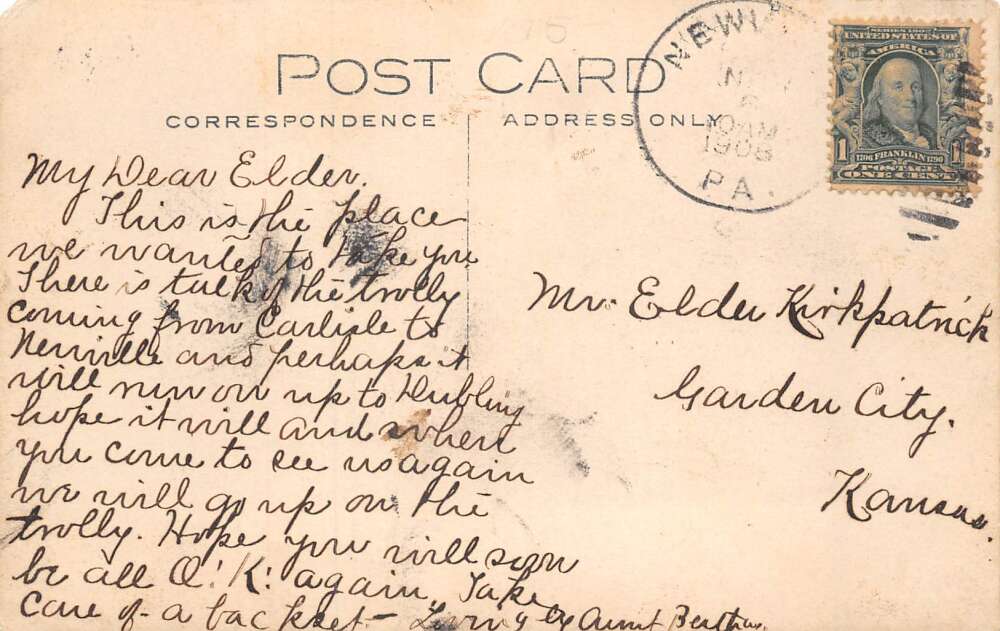 POST CARD
CORRESPONDENCE
ADDRESS ONLY
NEWVI
10 AM
1908
PA.
SERIES 1902
UNITED STATES OF
AMERICA
1 1706 FRANKLIN 1790 1
POSTAGE
ONE CENT
My Dear Elder.
This is the place
we wanted to take you
There is talk of the trolly
coming from Carlisle to
Newville and perhaps it
will run on up to Dubling
hope it will and when
you come to see us again
we will go up on the
trolly. Hope you will soon
be all O.'K.' again, Take
care of a backset - Loving Aunt Bertha
Mr. Elder Kirkpatrick
Garden City.
Kansas.